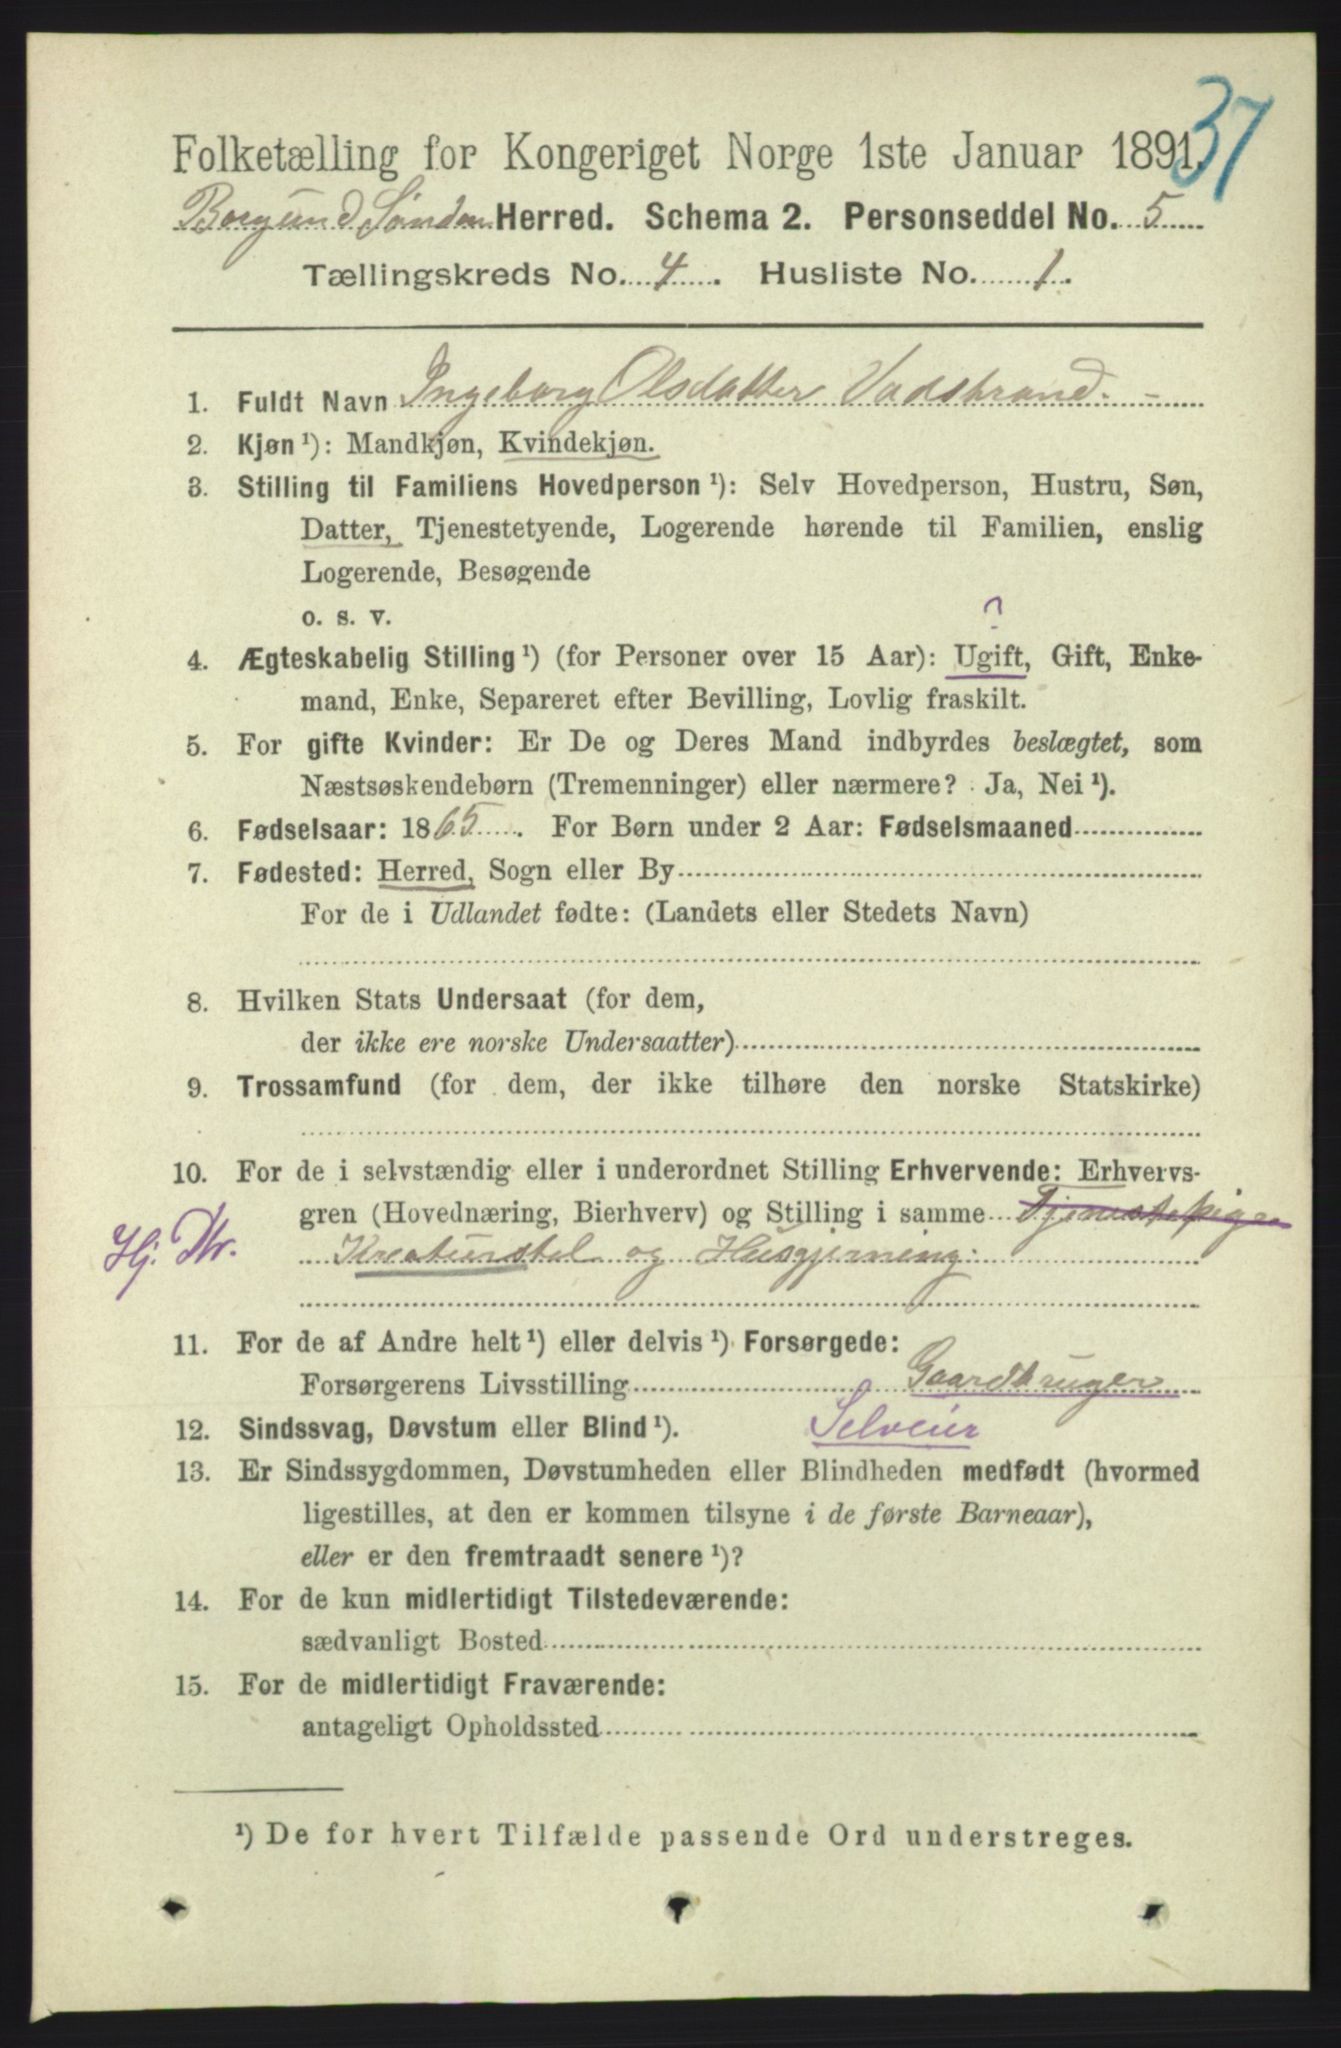 37
Folketælling for Kongeriget Norge 1ste Januar 1891.
Borgund Søndm. Herred. Schema 2. Personseddel No. 5
Tællingskreds No. 4. Husliste No. 1.
1. Fuldt Navn Ingeborg Olsdatter Vadstrand. -
2. Kjøn ¹): Mandkjøn, Kvindekjøn.
3. Stilling til Familiens Hovedperson ¹): Selv Hovedperson, Hustru, Søn,
Datter, Tjenestetyende, Logerende hørende til Familien, enslig
Logerende, Besøgende
o. s. v.
?
4. Ægteskabelig Stilling ¹) (for Personer over 15 Aar): Ugift, Gift, Enke-
mand, Enke, Separeret efter Bevilling, Lovlig fraskilt.
5. For gifte Kvinder: Er De og Deres Mand indbyrdes beslægtet, som
Næstsøskendebørn (Tremenninger) eller nærmere? Ja, Nei ¹).
6. Fødselsaar: 1865. For Børn under 2 Aar: Fødselsmaaned
7. Fødested: Herred, Sogn eller By
For de i Udlandet fødte: (Landets eller Stedets Navn)
8. Hvilken Stats Undersaat (for dem,
der ikke ere norske Undersaatter)
9. Trossamfund (for dem, der ikke tilhøre den norske Statskirke)
10. For de i selvstændig eller i underordnet Stilling Erhvervende: Erhvervs-
gren (Hovednæring, Bierhverv) og Stilling i samme Tjenestepige
Hj. Dtr. Kreaturstel og Husgjerning.
11. For de af Andre helt ¹) eller delvis ¹) Forsørgede:
Forsørgerens Livsstilling Gaardbruger
12. Sindssvag, Døvstum eller Blind ¹). Selveier
13. Er Sindssygdommen, Døvstumheden eller Blindheden medfødt (hvormed
ligestilles, at den er kommen tilsyne i de første Barneaar),
eller er den fremtraadt senere ¹)?
14. For de kun midlertidigt Tilstedeværende:
sædvanligt Bosted
15. For de midlertidigt Fraværende:
antageligt Opholdssted
¹) De for hvert Tilfælde passende Ord understreges.